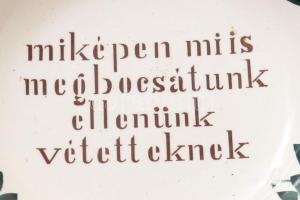 miképen mi is
megbocsátunk
ellenünk
vétetteknek